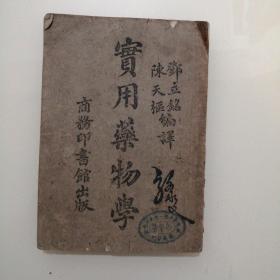 鄧立銘
陳天樞編譯
實用藥物學
商務印書館出版